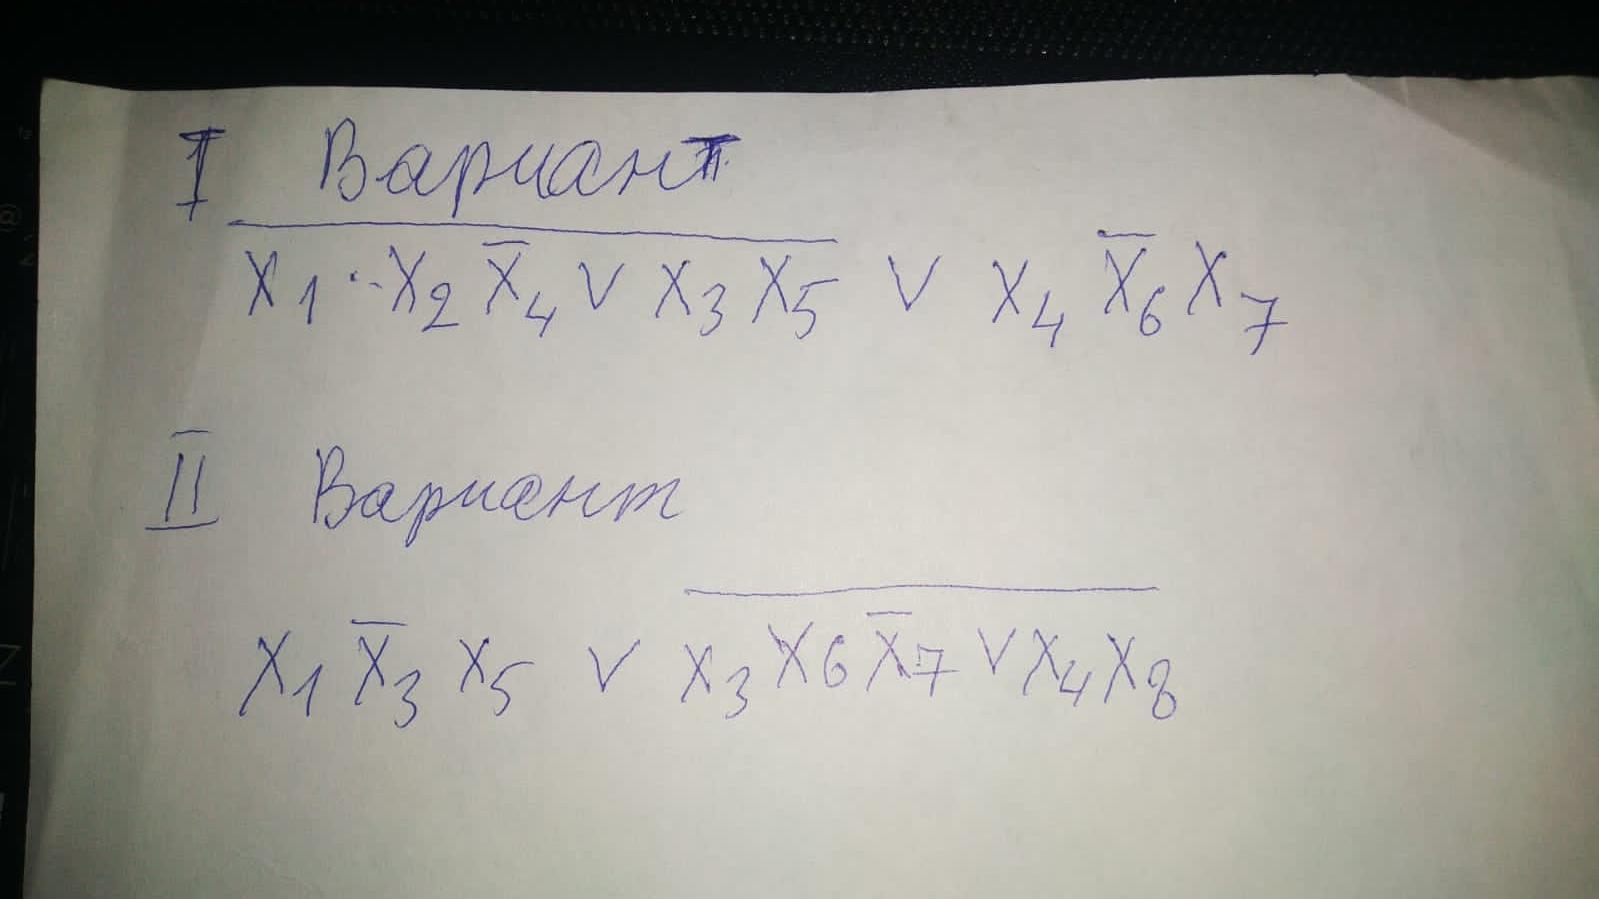 I Вариант
X₁ · X₂ X̄₄ V X₃ X₅ V X₄ X̄₆ X₇
II Вариант
X₁ X̄₃ X₅ V X₃ X₆ X̄₇ V X₄ X₈